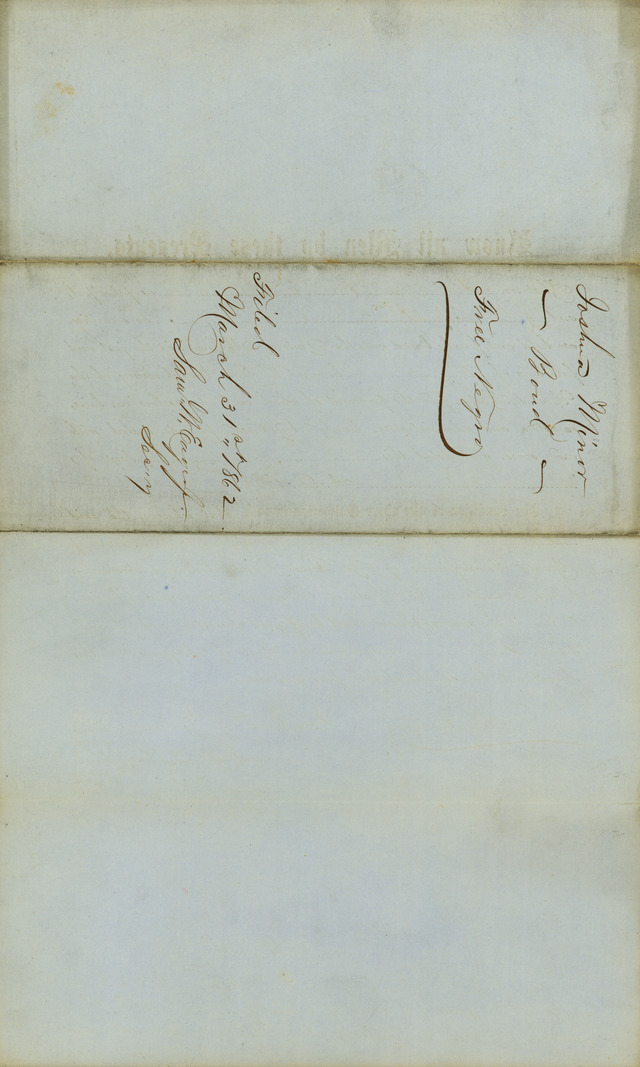 Joshua Minor
Bond
Free Negro
Filed
March 31st 1862
Saml W. Eager Jr.
Know all Men by these Presents